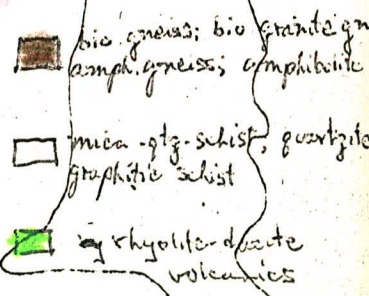 bio gneiss; bio granite gn
amph. gneiss; amphibolite
mica-qtz-schist, quartzite
graphitic schist
rhyolite-dacite
volcanics